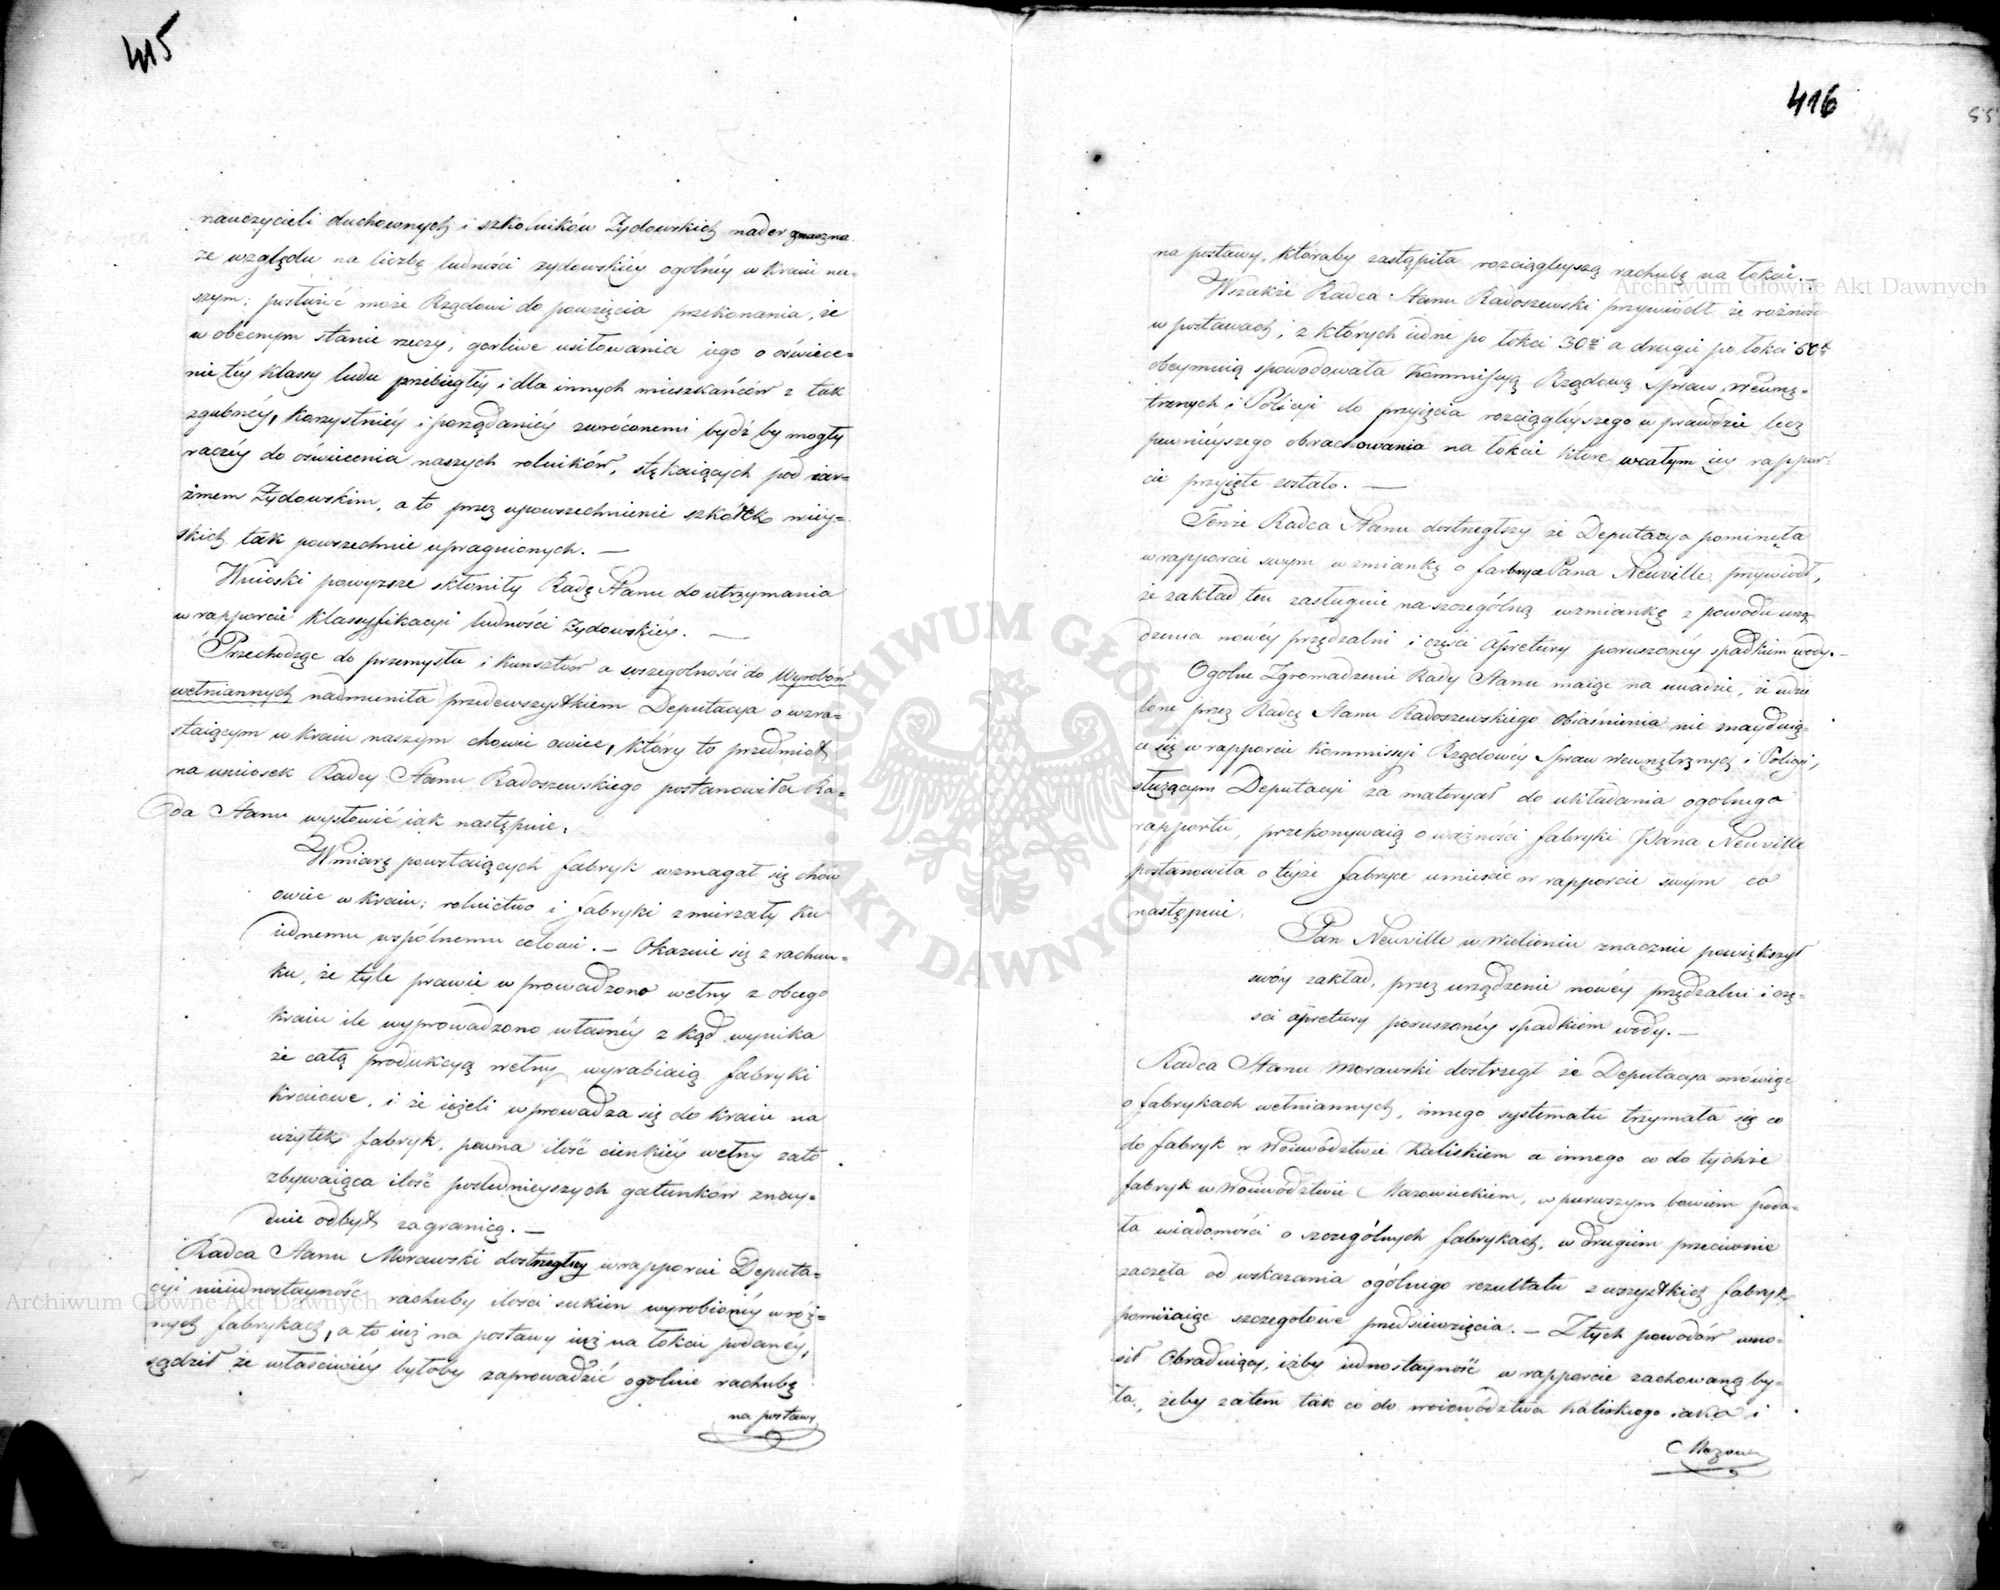 415
nauczycieli duchownych i szkolników Żydowskich nader znaczna
ze względu na liczbę ludności żydowskiey ogolnéy w kraiu na=
szym; posłużyć może Rządowi do powzięcia przekonania, że
w obecnym stanie rzeczy, gorliwe usiłowania iego o oświece=
nie téy klassy ludu przebiegłéy i dla innych mieszkańców z tak
zgubnéy, korzystniéy i porządaniéy zwróconemi bydź by mogły
raczéy do oświecenia naszych rolników, stękaiących pod iar=
zmem Żydowskim, a to przez upowszechnienie szkółek wiey=
skich tak powszechnie upragnionych. —
Wnioski powyższe skłoniły Radę Stanu do utrzymania
w rapporcie klassyfikacyi ludności żydowskiéy. —
Przechodząc do przemysłu i kunsztów a szczególności do Wyrobów
wełniannych nadmieniła przedewszystkiem Deputacya o wzra=
staiącym w kraiu naszym chowie owiec, który to przedmiot
na wniosek Radcy Stanu Radoszewskiego postanowiła Ra=
da Stanu wysłowić iak następuie:
W miarę powstaiących fabryk wzmagał się chów
owiec w kraiu; rolnictwo i fabryki zmierzały ku
iednemu wspólnemu celowi. — Okazuie się z rachun=
ku, że tyle prawie wprowadzono wełny z obcego
kraiu ile wyprowadzono własnéy z kąd wynika
że całą produkcyą wełny wyrabiaią fabryki
kraiowe, i że ieżeli wprowadza się do kraiu na
użytek fabryk, pewna ilość cienkiéy wełny zato
zbywaiąca ilość poślednieyszych gatunków znay=
duie odbyt zagranicą. —
Radca Stanu Morawski dostrzegłszy w rapporcie Deputa=
cyi nieiednostayność rachuby ilości sukien wyrobionéy w róż=
nych fabrykach, a to iuż na postawy iuż na łokcie podanéy,
sądził że właściwiéy byłoby zaprowadzić ogolnie rachubę
na postawy
416
55
na postawy, któraby zastąpiła rozciągleyszą rachubę na łokcie.
Wszakże Radca Stanu Radoszewski przywiódł że różność
w postawach, z których iedne po łokci 30 a drugie po łokci 60
obeymuią spowodowała Kommissyą Rządową Spraw Wewnę=
trznych i Policyi do przyięcia rozciągléyszego wprawdzie lecz
pewnieyszego obrachowania na łokcie które w całym iey rappor=
cie przyięte zostało. —
Tenże Radca Stanu dostrzegłszy że Deputacya pominęła
w rapporcie swym wzmiankę o fabryce Pana Neuville, przywiódł,
że zakład ten zasługuie na szczególną wzmiankę z powodu urzą=
dzenia nowéy przędzalni i części apretury poruszonéy spadkiem wody. —
Ogolne Zgromadzenie Rady Stanu maiąc na uwadze, że udzie
lone przez Radcę Stanu Radoszewskiego obiaśnienia nie znayduią=
ce się w rapporcie Kommissyi Rządowéy Spraw Wewnętrznych i Policyi,
służącym Deputacyi za materyał do układania ogolnego
rapportu, przekonywaią o ważności fabryki Pana Neuville
postanowiła o téyże fabryce umieścić w rapporcie swym co
następuie:
Pan Neuville w Wieloniu znacznie powiększył
swóy zakład, przez urządzenie nowéy przędzalni i czę=
ści apretury poruszonéy spadkiem wody. —
Radca Stanu Morawski dostrzegł że Deputacya mówiąc
o fabrykach wełniannych, innego systematu trzymała się co
do fabryk w Woiewództwie Kaliskiem a innego co do tychże
fabryk w Woiewództwie Mazowieckiem, w pierwszym bowiem poda=
ła wiadomości o szczególnych fabrykach, w drugiem przeciwnie
zaczęła od wskazania ogólnego rezultatu z wszystkich fabryk
pomiiaiąc szczegółowe przedsięwzięcia. — Z tych powodów wno=
sił Obraduiący, iżby iednostayność w rapporcie zachowaną by=
ła, żeby zatem tak co do woiewództwa kaliskiego iako i
Mazowie
Archiwum Główne Akt Dawnych
Archiwum Główne Akt Dawnych
ARCHIWUM GŁÓWNE AKT DAWNYCH